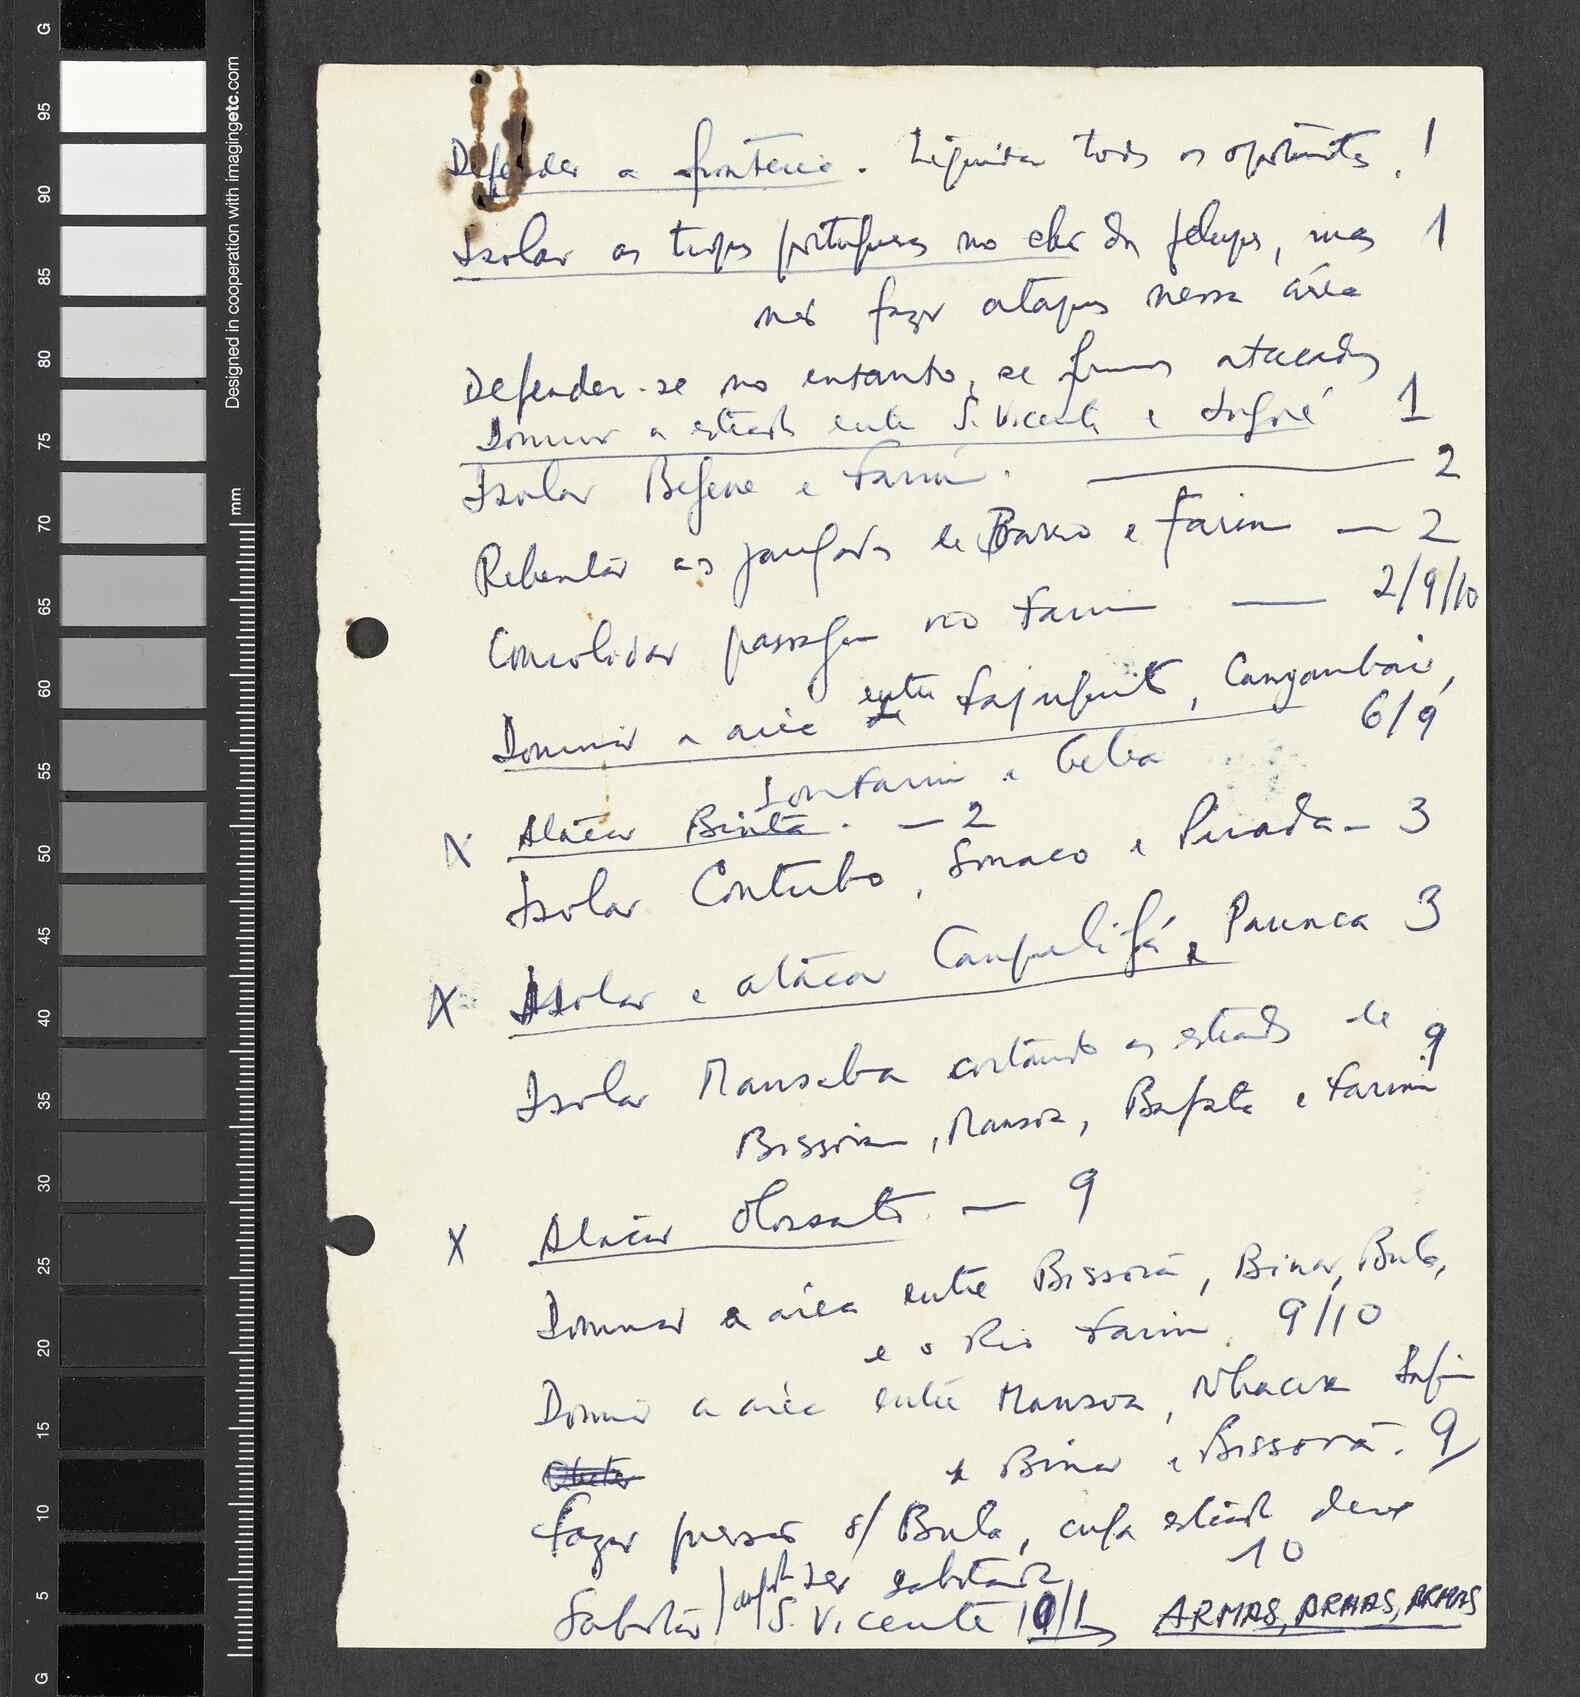 Defender a fronteira. Liquidar todos os oportunistas. 1
Isolar as tropas portuguesas no chão dos felupes, mas 1
não fazer ataques nessa área
Defender-se no entanto, se formos atacados
Dominar a estrada entre S. Vicente e Ingoré 1
Isolar Begene e Farim. — 2
Rebentar as jangadas de Barro e Farim — 2
Consolidar passagem rio Farim — 2/9/10
Dominar a área entre Fajonquito, Canjambari,
6/9
Jonfarim e Geba
X Atacar Binta. — 2
Isolar Contubo, Sonaco e Pirada — 3
X Isolar e atacar Canquelifá e Paunca 3
Isolar Mansaba cortando as estradas de 9
Bissorã, Mansoa, Bafatá e Farim
X Atacar Olossato. — 9
Dominar a área entre Bissorã, Binar, Bula,
e o Rio Farim. 9/10
Dominar a área entre Mansoa, Nhacra Safim
e Binar e Bissorã. 9
Fazer pressão s/ Bula, cuja estrada deve
ser sabotada 10
Sabotar S. Vicente 10/1 ARMAS, ARMAS, ARMAS
Designed in cooperation with imagingetc.com
mm
G
95
90
85
80
75
70
65
60
55
50
45
40
35
30
25
20
15
10
5
G